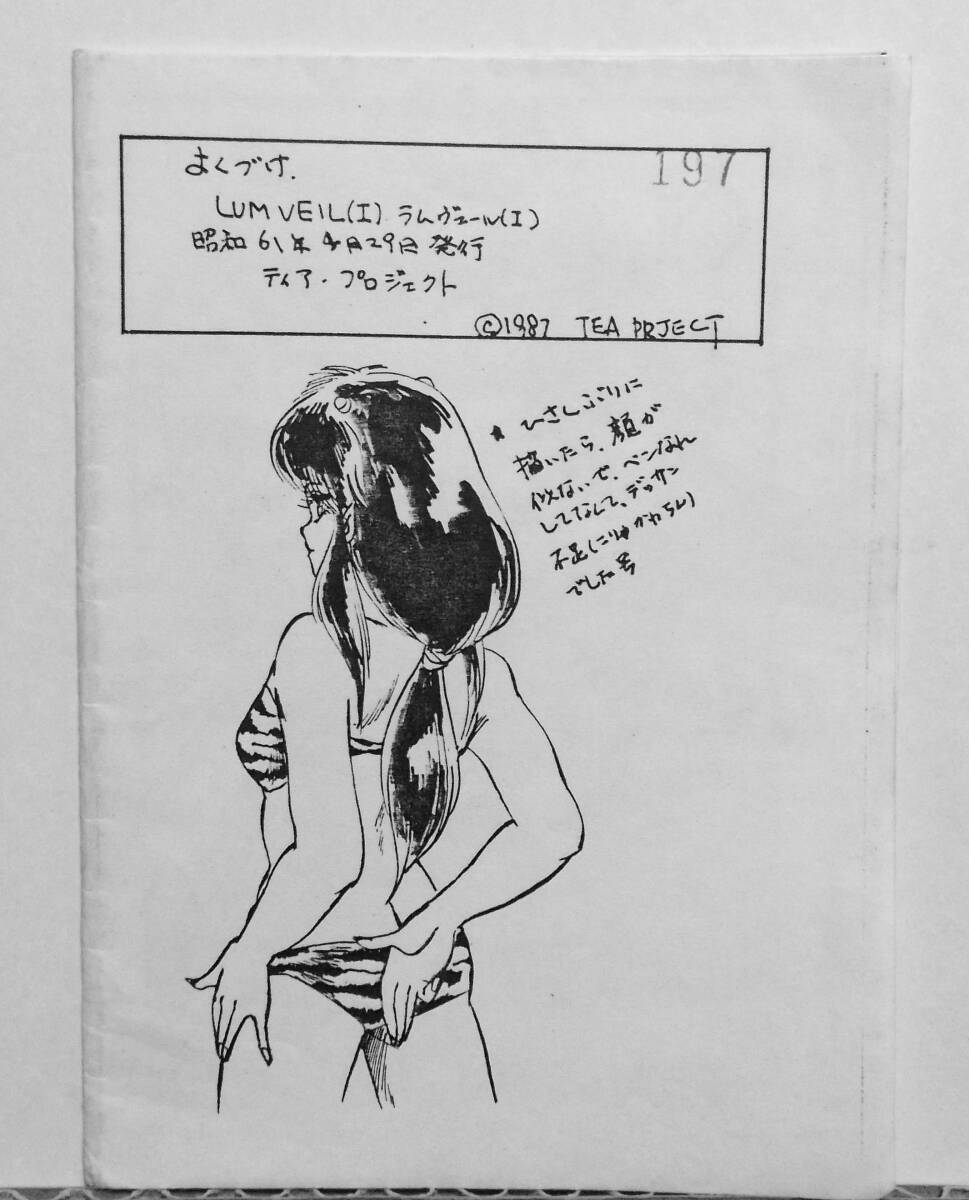 おくづけ.
197
LUM VEIL(I) ラムヴェール(I)
昭和61年4月29日発行
ティア・プロジェクト
©1987 TEA PRJECT
* ひさしぶりに
描いたら、顔が
似ないで、ペンなれ
してなくて、デッサン
不足
でした